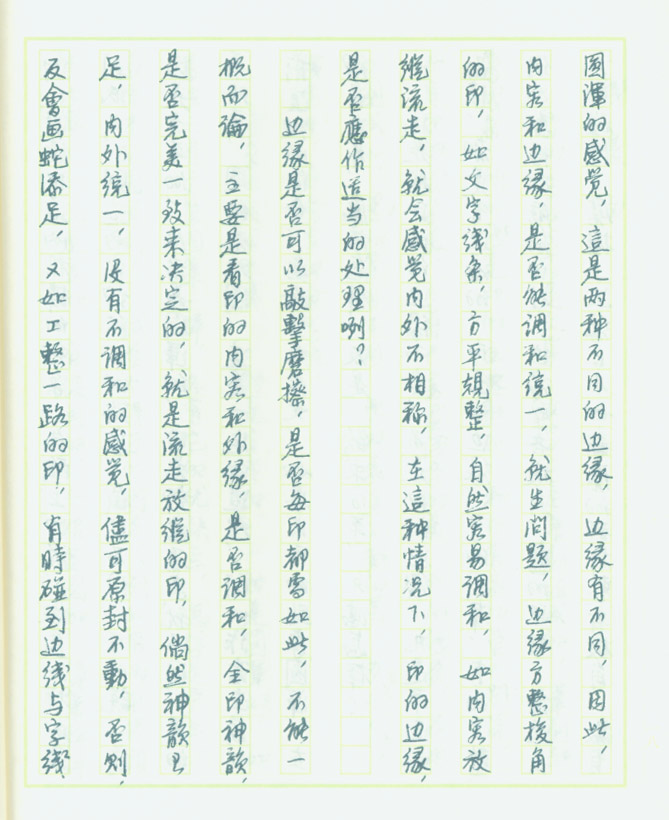 圆渾的感觉，這是两种不同的边缘，边缘有不同，因此，
内容和边缘，是否能调和统一，就生问题，边缘方整棱角
的印，如文字线条，方平规整，自然容易调和，如内容放
纵流走，就会感觉内外不相称，在這种情况下，印的边缘，
是否應作适当的处理咧？
边缘是否可以敲擊磨擦，是否每印都需如此，不能一
概而論，主要是看印的内容和外缘，是否调和，全印神韵，
是否完美一致来决定的，就是流走放纵的印，倘然神韵已
足，内外统一，没有不调和的感觉，儘可原封不動，否则，
反會画蛇添足，又如工整一路的印，有時碰到边线与字线